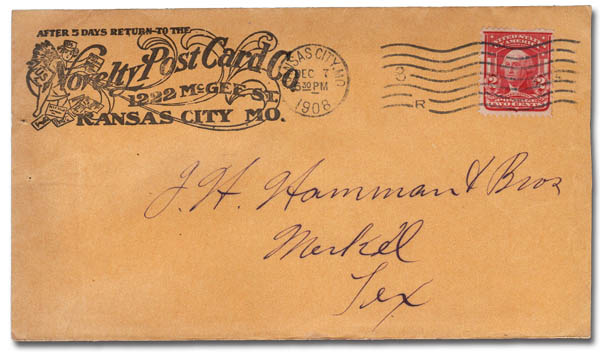 AFTER 5 DAYS RETURN TO THE
Novelty Post Card Co.
1222 McGEE ST.
KANSAS CITY MO.
KANSAS CITY, MO.
DEC 7
5-30 PM
1908
3
R
UNITED STATES
OF AMERICA
2 2
TWO CENTS
J. H. Hamman & Bros
Merkel
Tex